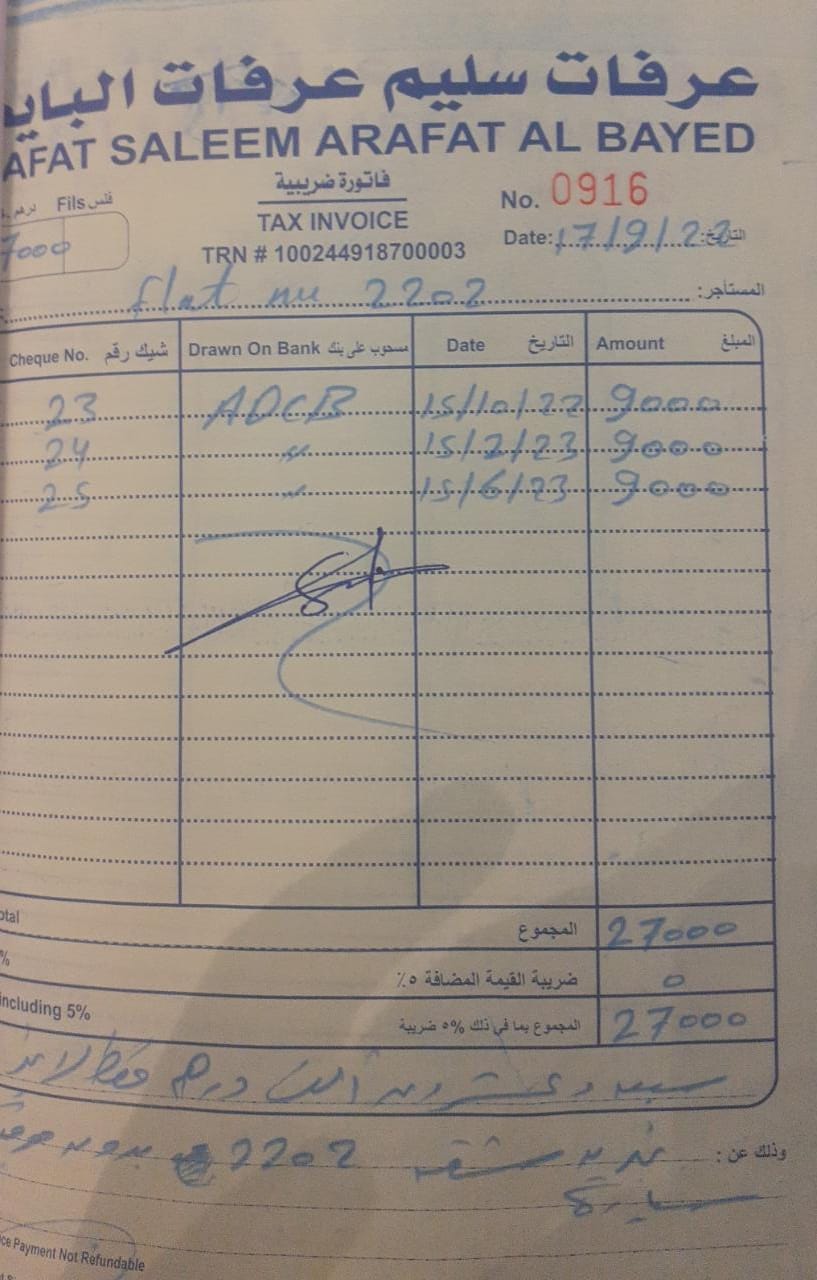 عرفات سليم عرفات الباي
AFAT SALEEM ARAFAT AL BAYED
درهم Fils فلس
7000
فاتورة ضريبية
TAX INVOICE
TRN # 100244918700003
No. 0916
Date: 17/9/22 التاريخ:
flat nu 2202 المستأجر:
Cheque No. شيك رقم Drawn On Bank مسحوب على بنك Date التاريخ Amount المبلغ
23 ADCB 15/10/22 9000
24 〃 15/2/23 9000
25 〃 15/6/23 9000
otal المجموع 27000
% ضريبة القيمة المضافة ٥٪ 0
including 5% المجموع بما في ذلك 5% ضريبة 27000
سبعه وعشرون الف درهم فقط لا غير
وذلك عن: تجديد شقه 2202 بدون موقف
سيارة
ce Payment Not Refundable